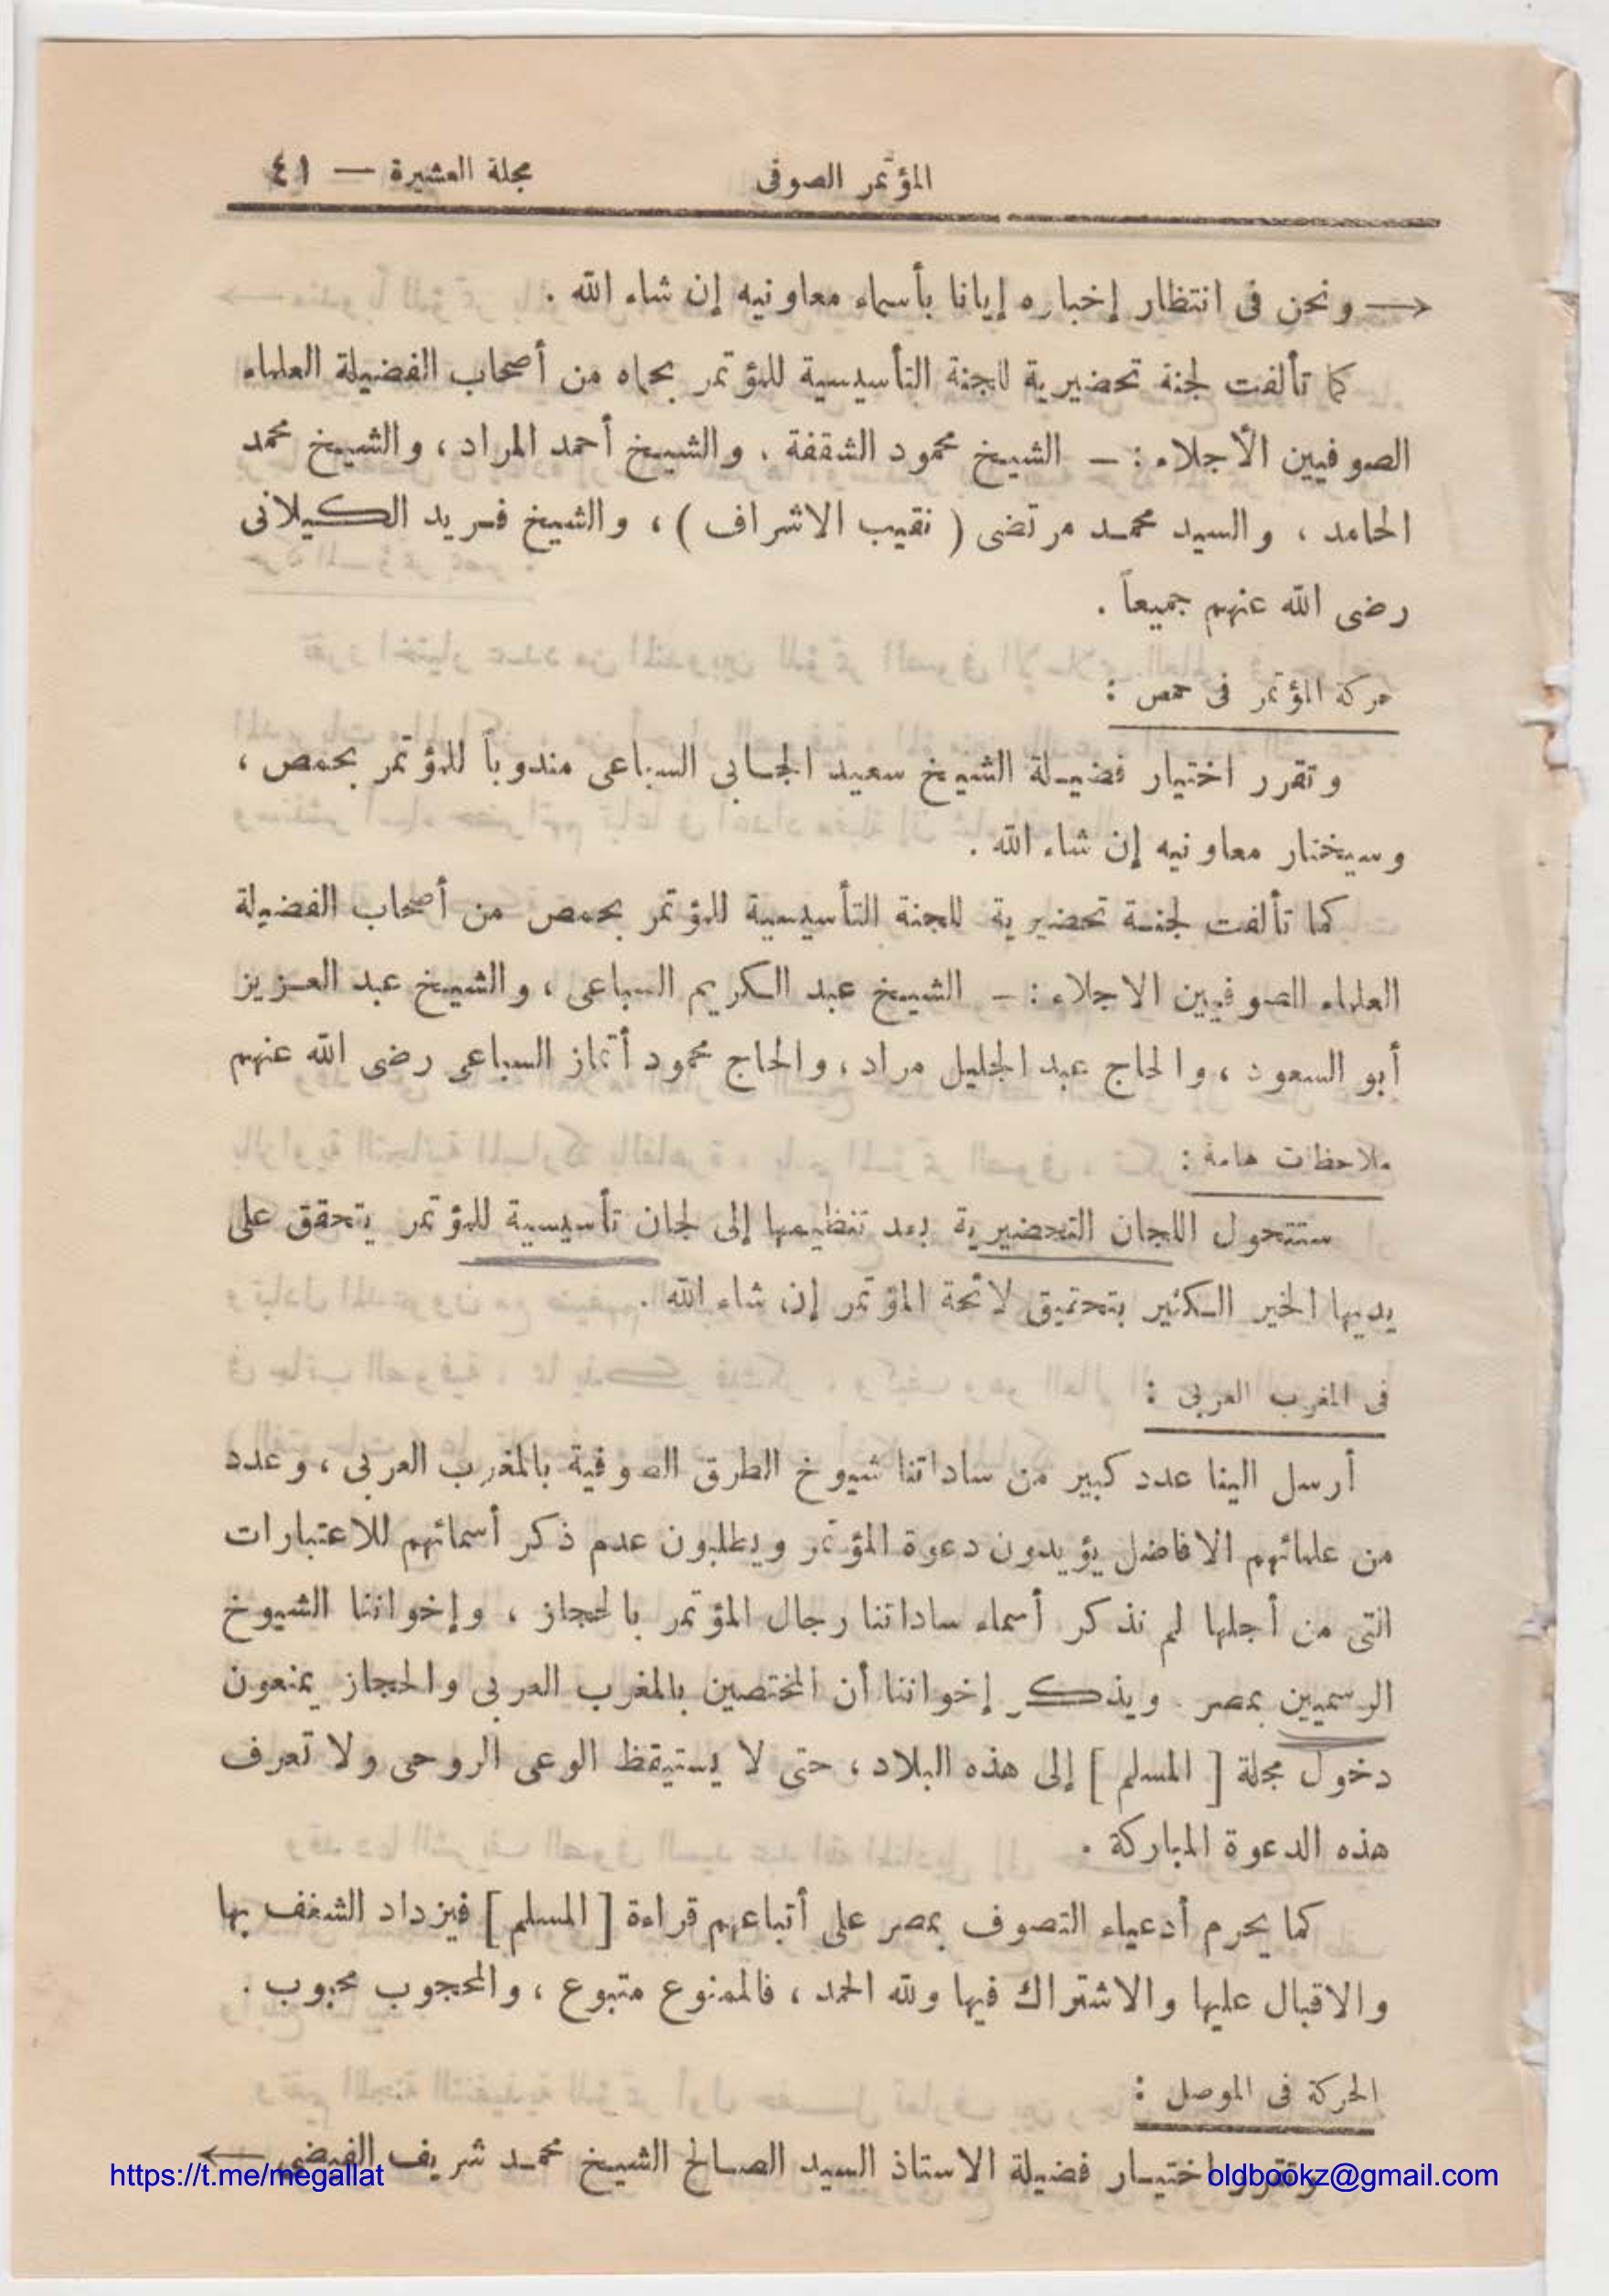 المؤتمر الصوفى
مجلة العشيرة — ٤١
← ونحن فى انتظار إخباره إيانا بأسماء معاونيه إن شاء الله .
كما تألفت لجنة تحضيرية للجنة التأسيسية للمؤتمر بحماه من أصحاب الفضيلة العلماء
الصوفيين الأجلاء : — الشيخ محمود الشقفة ، والشيخ أحمد المراد ، والشيخ محمد
الحامد ، والسيد محمد مرتضى ( نقيب الاشراف ) ، والشيخ فريد الكيلانى
رضى الله عنهم جميعاً .
حركة المؤتمر فى حمص :
وتقرر اختيار فضيلة الشيخ سعيد الجابى السباعى مندوباً للمؤتمر بحمص ،
وسيختار معاونيه إن شاء الله .
كما تألفت لجنة تحضيرية للجنة التأسيسية للمؤتمر بحمص من أصحاب الفضيلة
العلماء الصوفيين الاجلاء : — الشيخ عبد الكريم السباعى ، والشيخ عبد العزيز
أبو السعود ، والحاج عبد الجليل مراد ، والحاج محمود أتماز السباعى رضى الله عنهم
ملاحظات هامة :
ستتحول اللجان التحضيرية بعد تنظيمها إلى لجان تأسيسية للمؤتمر يتحقق على
يديها الخير الكثير بتحقيق لائحة المؤتمر إن شاء الله .
فى المغرب العربى :
أرسل الينا عدد كبير من ساداتنا شيوخ الطرق الصوفية بالمغرب العربى ، وعدد
من علمائهم الافاضل يؤيدون دعوة المؤتمر ويطلبون عدم ذكر أسمائهم للاعتبارات
التى من أجلها لم نذكر أسماء ساداتنا رجال المؤتمر بالحجاز ، وإخواننا الشيوخ
الرسميين بمصر . ويذكر إخواننا أن المختصين بالمغرب العربى والحجاز يمنعون
دخول مجلة [ المسلم ] إلى هذه البلاد ، حتى لا يستيقظ الوعى الروحى ولا تعرف
هذه الدعوة المباركة .
كما يحرم أدعياء التصوف بمصر على أتباعهم قراءة [ المسلم ] فيزداد الشغف بها
والاقبال عليها والاشتراك فيها ولله الحمد ، فالممنوع متبوع ، والمحجوب محبوب .
الحركة فى الموصل :
وتقرر اختيار فضيلة الاستاذ السيد الصالح الشيخ محمد شريف الفيضى ←
https://t.me/megallat
oldbookz@gmail.com